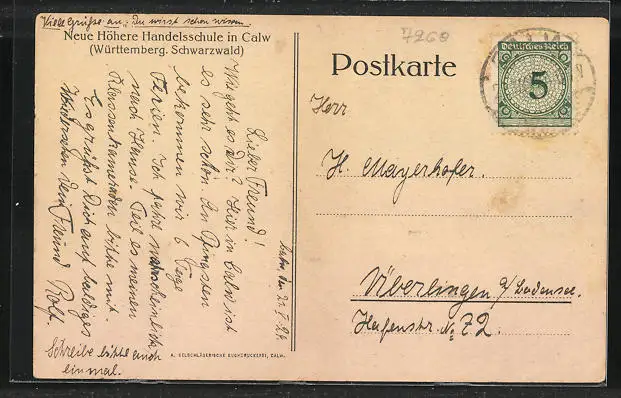 Viele Grüße an: Du wirst schon wissen.
Neue Höhere Handelsschule in Calw
(Württemberg. Schwarzwald)
Calw, den 21. V. 24.
Lieber Freund!
Wie geht es Dir? Hier in Calw ist
es sehr schön. An Pfingsten
bekommen wir 6 Tage
Ferien. Ich fahre wahrscheinlich
nach Hause. Teile es meinen
Klassenkameraden bitte mit.
Es grüßt Dich auf baldiges
Wiedersehen dein Freund Rolf.
Schreibe bitte auch
einmal.
A. OELSCHLÄGER'SCHE BUCHDRUCKEREI, CALW.
7260
Postkarte
Deutsches Reich
5
Herr
H. Mayerhofer.
Überlingen a/Bodensee.
Hafenstr. No 72.